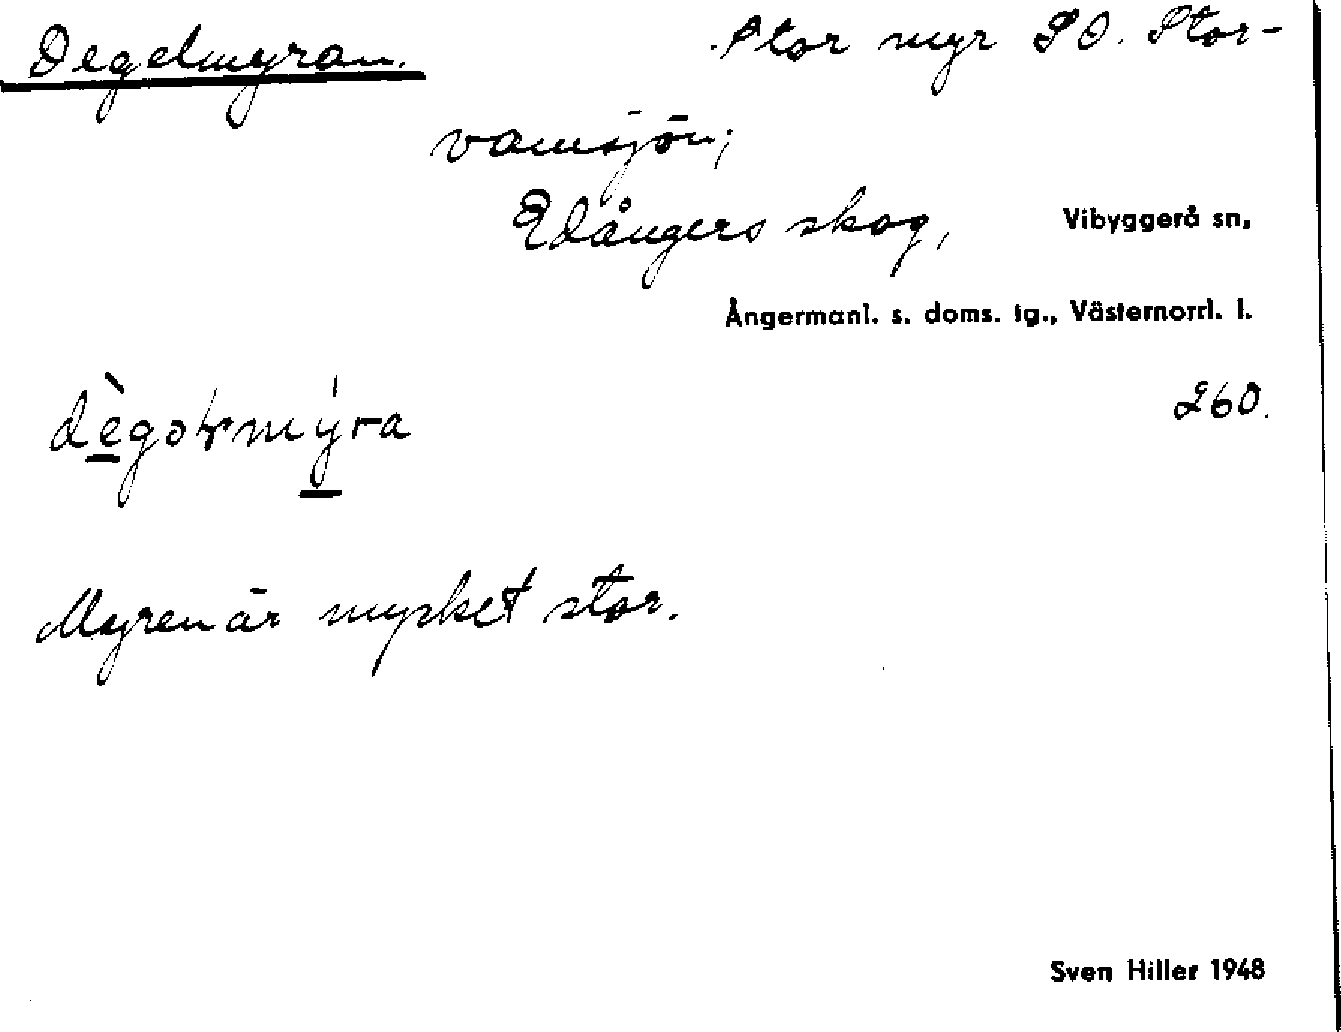 Degelmyran. Stor myr SO. Stor-
vamsjön;
Edångers skog, Vibyggerå sn,
Ångermanl. s. doms. tg., Västernorrl. l.
260.
Myren är mycket stor.
Sven Hiller 1948